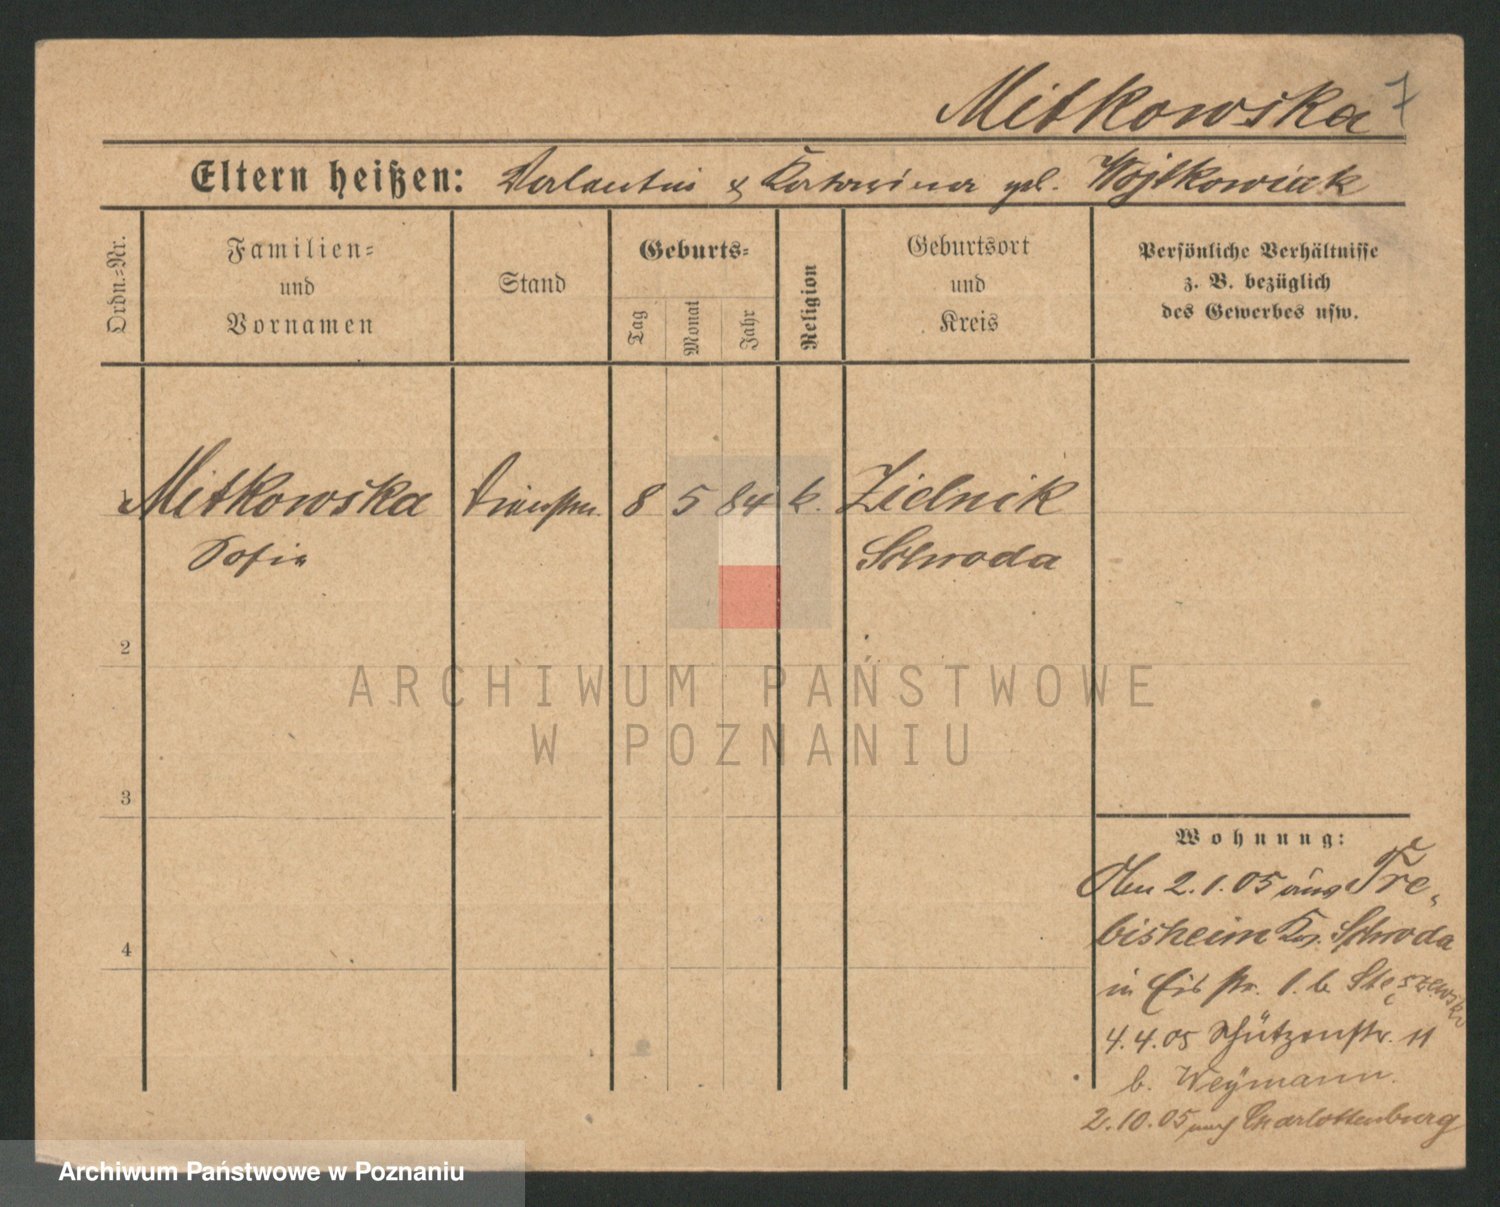 Mitkowska 7
Eltern heißen: Valentin & Katarzina geb. Wojtkowiak
Ordn.-Nr.
Familien-
und
Vornamen
Stand
Geburts-
Tag
Monat
Jahr
Religion
Geburtsort
und
Kreis
Persönliche Verhältnisse
z. B. bezüglich
des Gewerbes usw.
1 Mitkowska 8 5 84 k. Zielnik
Sofie Schroda
2
3
4
Wohnung:
Am 2.1.05 aus Tre-
bisheim Kr. Schroda
in str. 1. b. Stęszewski
4.4.05 Schützenstr. 11
b. Weymann.
2.10.05 nach Charlottenburg
ARCHIWUM PAŃSTWOWE
W POZNANIU
Archiwum Państwowe w Poznaniu